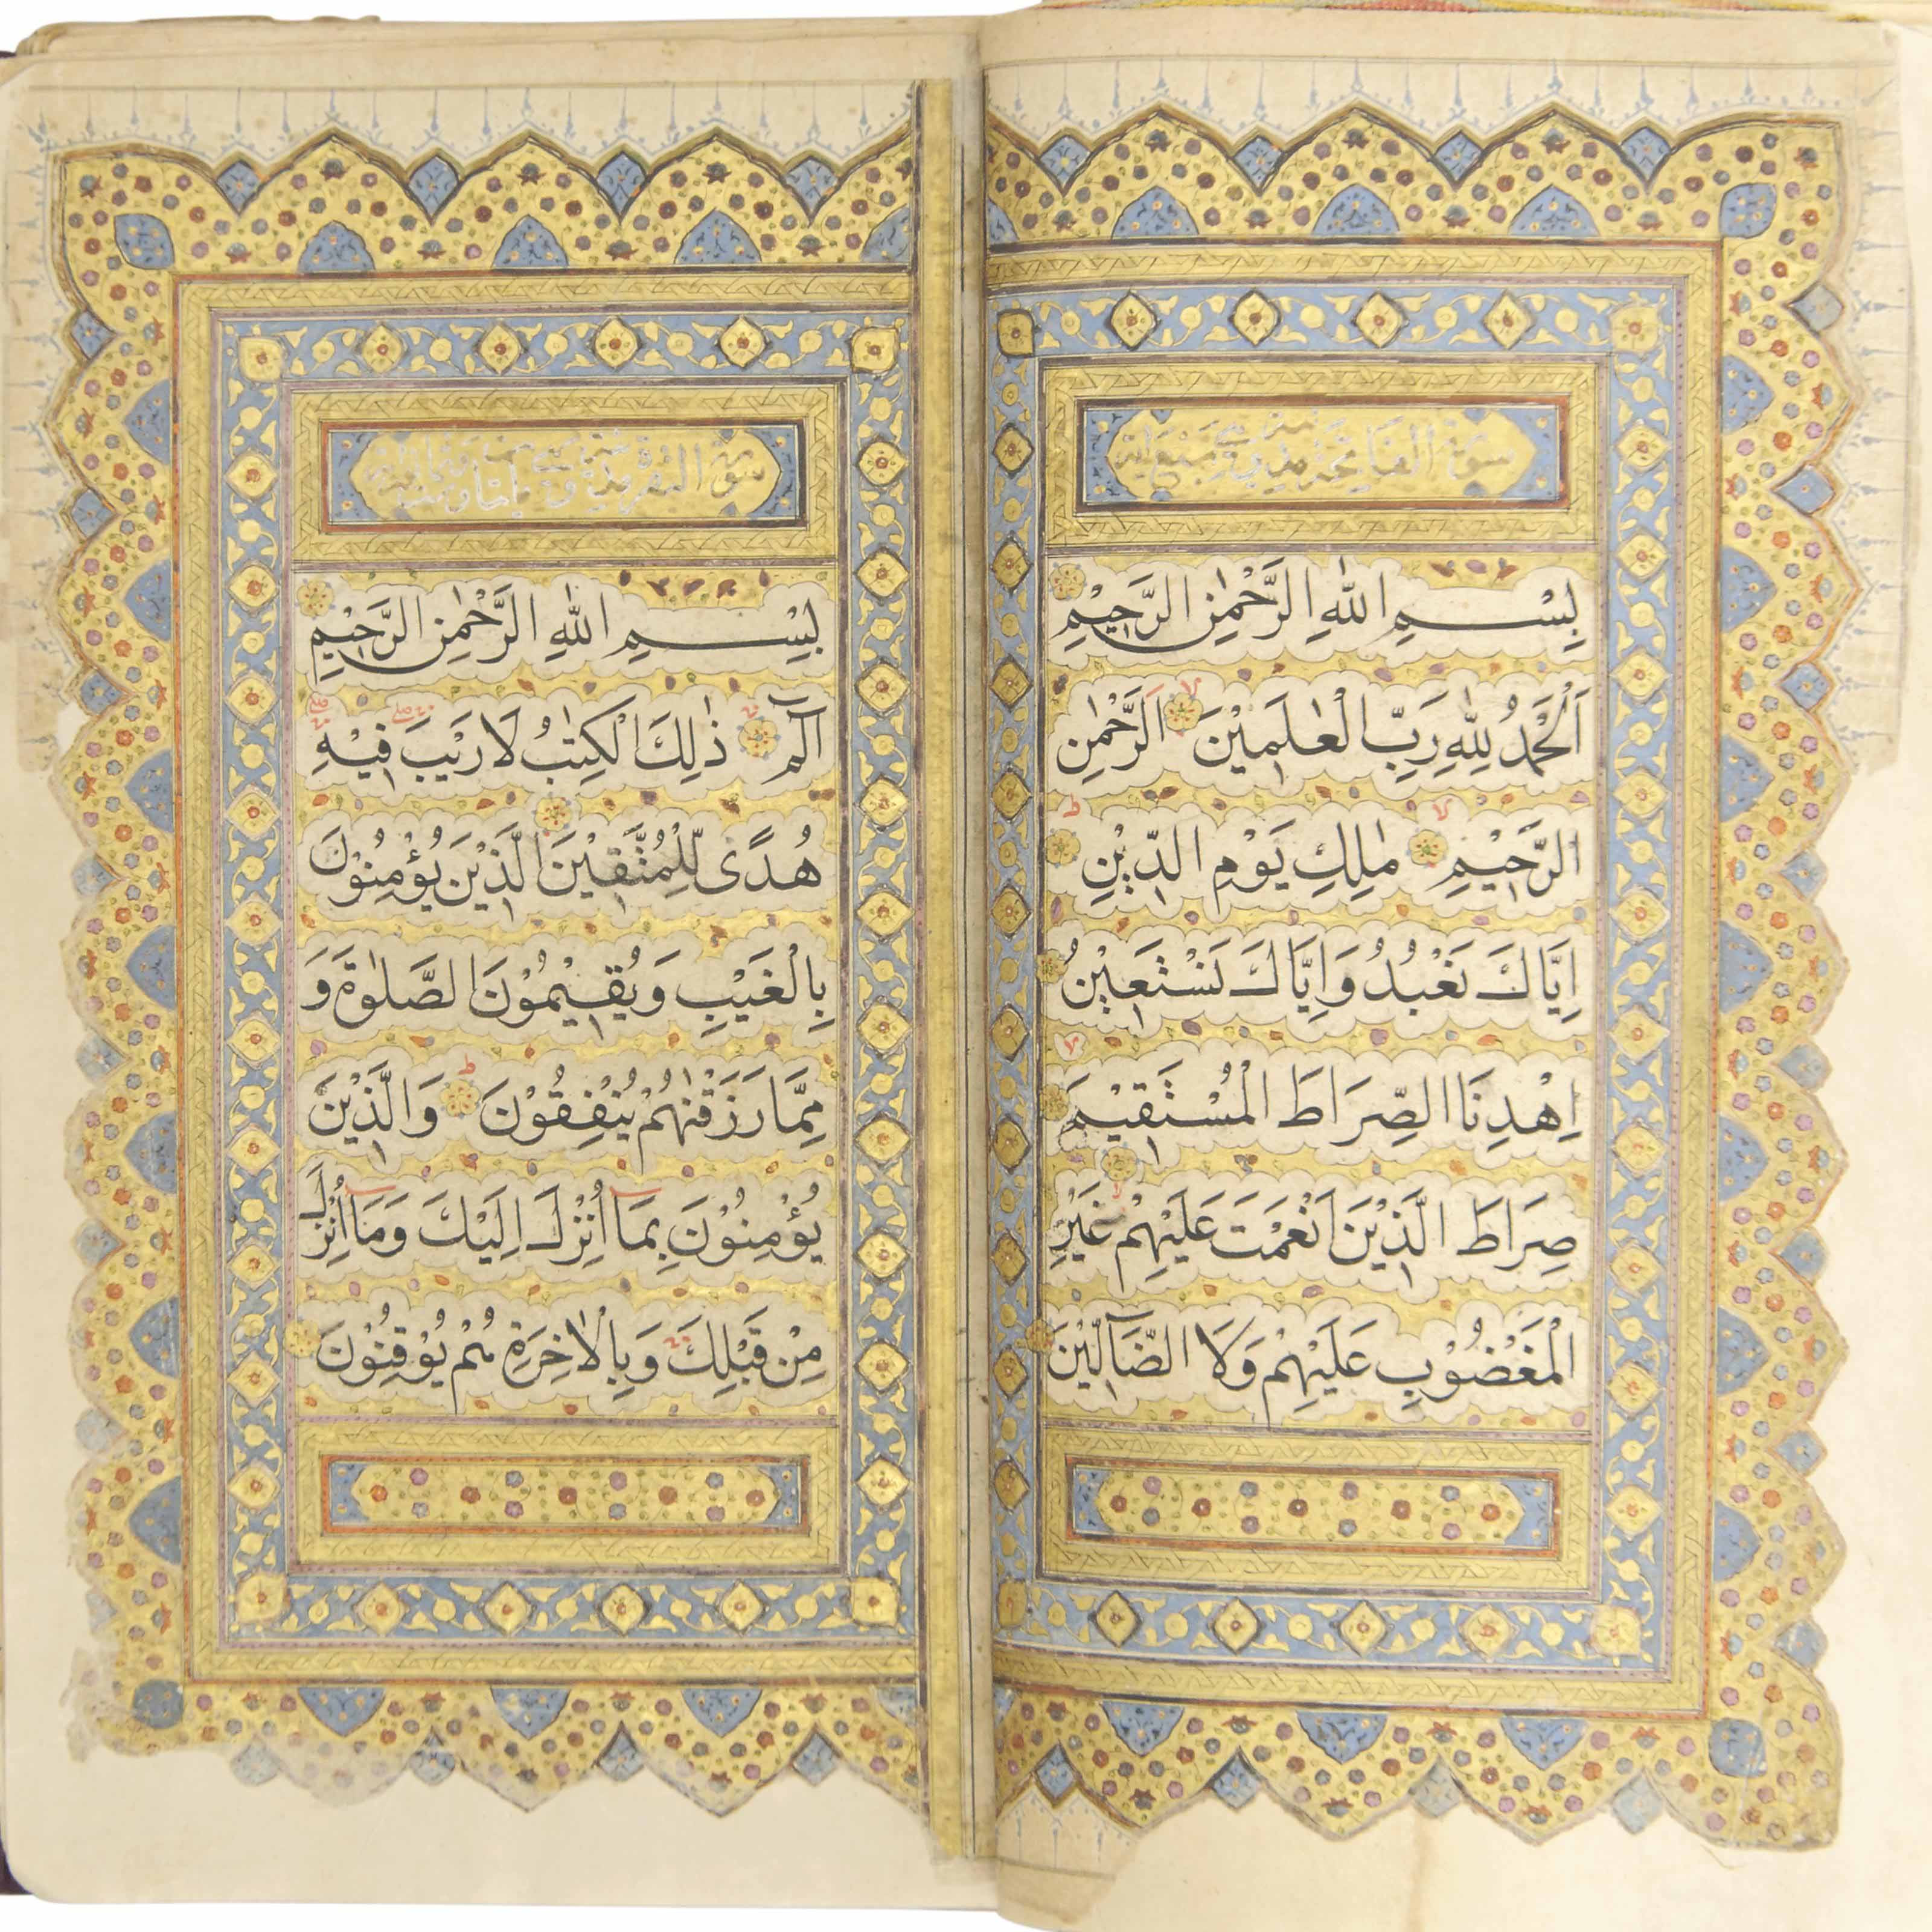 سورة الفاتحة
بِسْمِ اللّٰهِ الرَّحْمٰنِ الرَّحِيْمِ
اَلْحَمْدُ لِلّٰهِ رَبِّ الْعٰلَمِيْنَ اَلرَّحْمٰنِ
الرَّحِيْمِ مٰلِكِ يَوْمِ الدِّيْنِ
اِيَّاكَ نَعْبُدُ وَاِيَّاكَ نَسْتَعِيْنُ
اِهْدِنَا الصِّرَاطَ الْمُسْتَقِيْمَ
صِرَاطَ الَّذِيْنَ اَنْعَمْتَ عَلَيْهِمْ غَيْرِ
الْمَغْضُوْبِ عَلَيْهِمْ وَلَا الضَّآلِّيْنَ
سورة البقرة
بِسْمِ اللّٰهِ الرَّحْمٰنِ الرَّحِيْمِ
الٓمٓ ذٰلِكَ الْكِتٰبُ لَا رَيْبَ فِيْهِ
هُدًى لِّلْمُتَّقِيْنَ الَّذِيْنَ يُؤْمِنُوْنَ
بِالْغَيْبِ وَيُقِيْمُوْنَ الصَّلٰوةَ وَ
مِمَّا رَزَقْنٰهُمْ يُنْفِقُوْنَ وَالَّذِيْنَ
يُؤْمِنُوْنَ بِمَا اُنْزِلَ اِلَيْكَ وَمَا اُنْزِلَ
مِنْ قَبْلِكَ وَبِالْاٰخِرَةِ هُمْ يُوْقِنُوْنَ